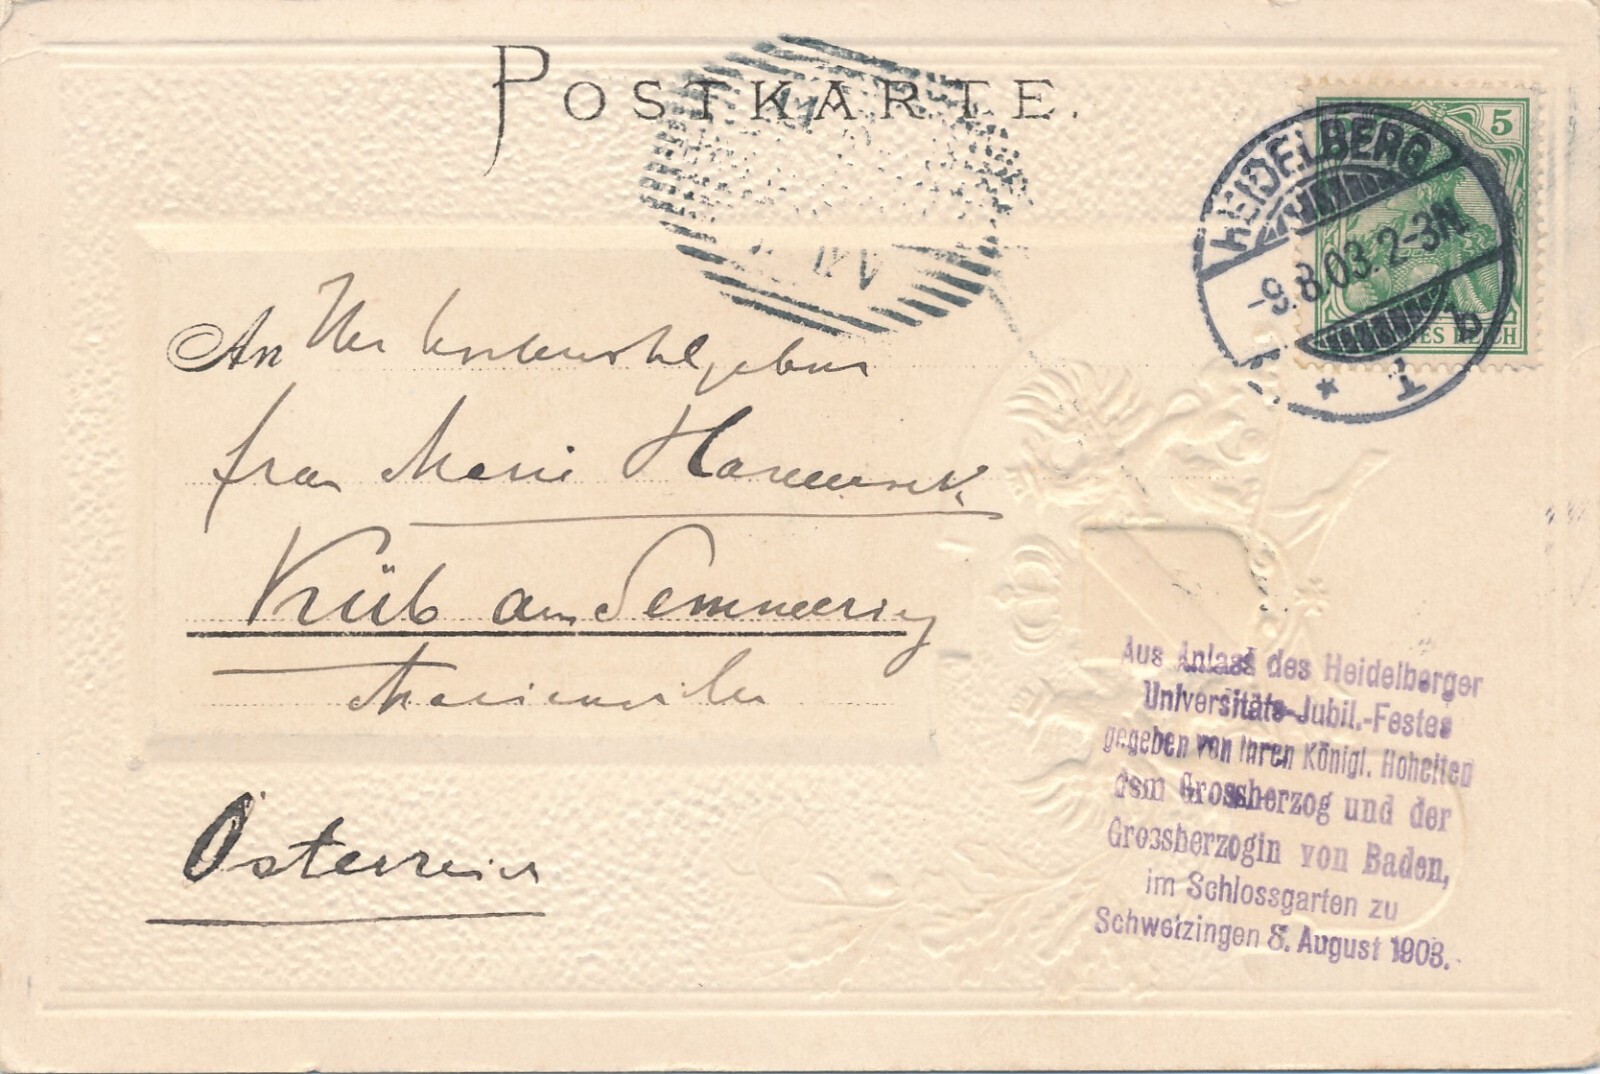 POSTKARTE.
5
HEIDELBERG
-9.8.03. 2-3N
* 1 b
DEUTSCHES REICH
An Ihr
Frau Marie
Küb am Semmering
Österreich
Aus Anlass des Heidelberger
Universitäts-Jubil.-Festes
gegeben von Ihren Königl. Hoheiten
dem Grossherzog und der
Grossherzogin von Baden,
im Schlossgarten zu
Schwetzingen 8. August 1903.